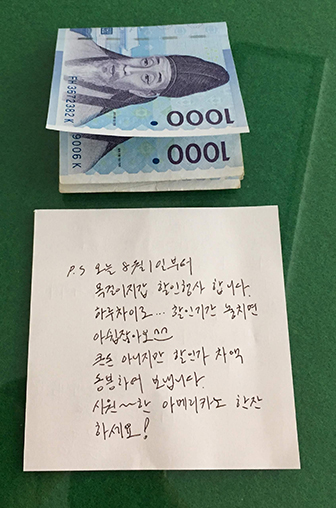 FH3572382K
1000
9006 K
1000
P.S 오늘 8월 1일부터
목걸이지갑 할인행사 합니다.
하루차이로... 할인기간 놓치면
아쉽잖아요^^
큰돈 아니지만 할인가 차액
동봉하여 보냅니다.
시원~~한 아메리카노 한잔
하세요!